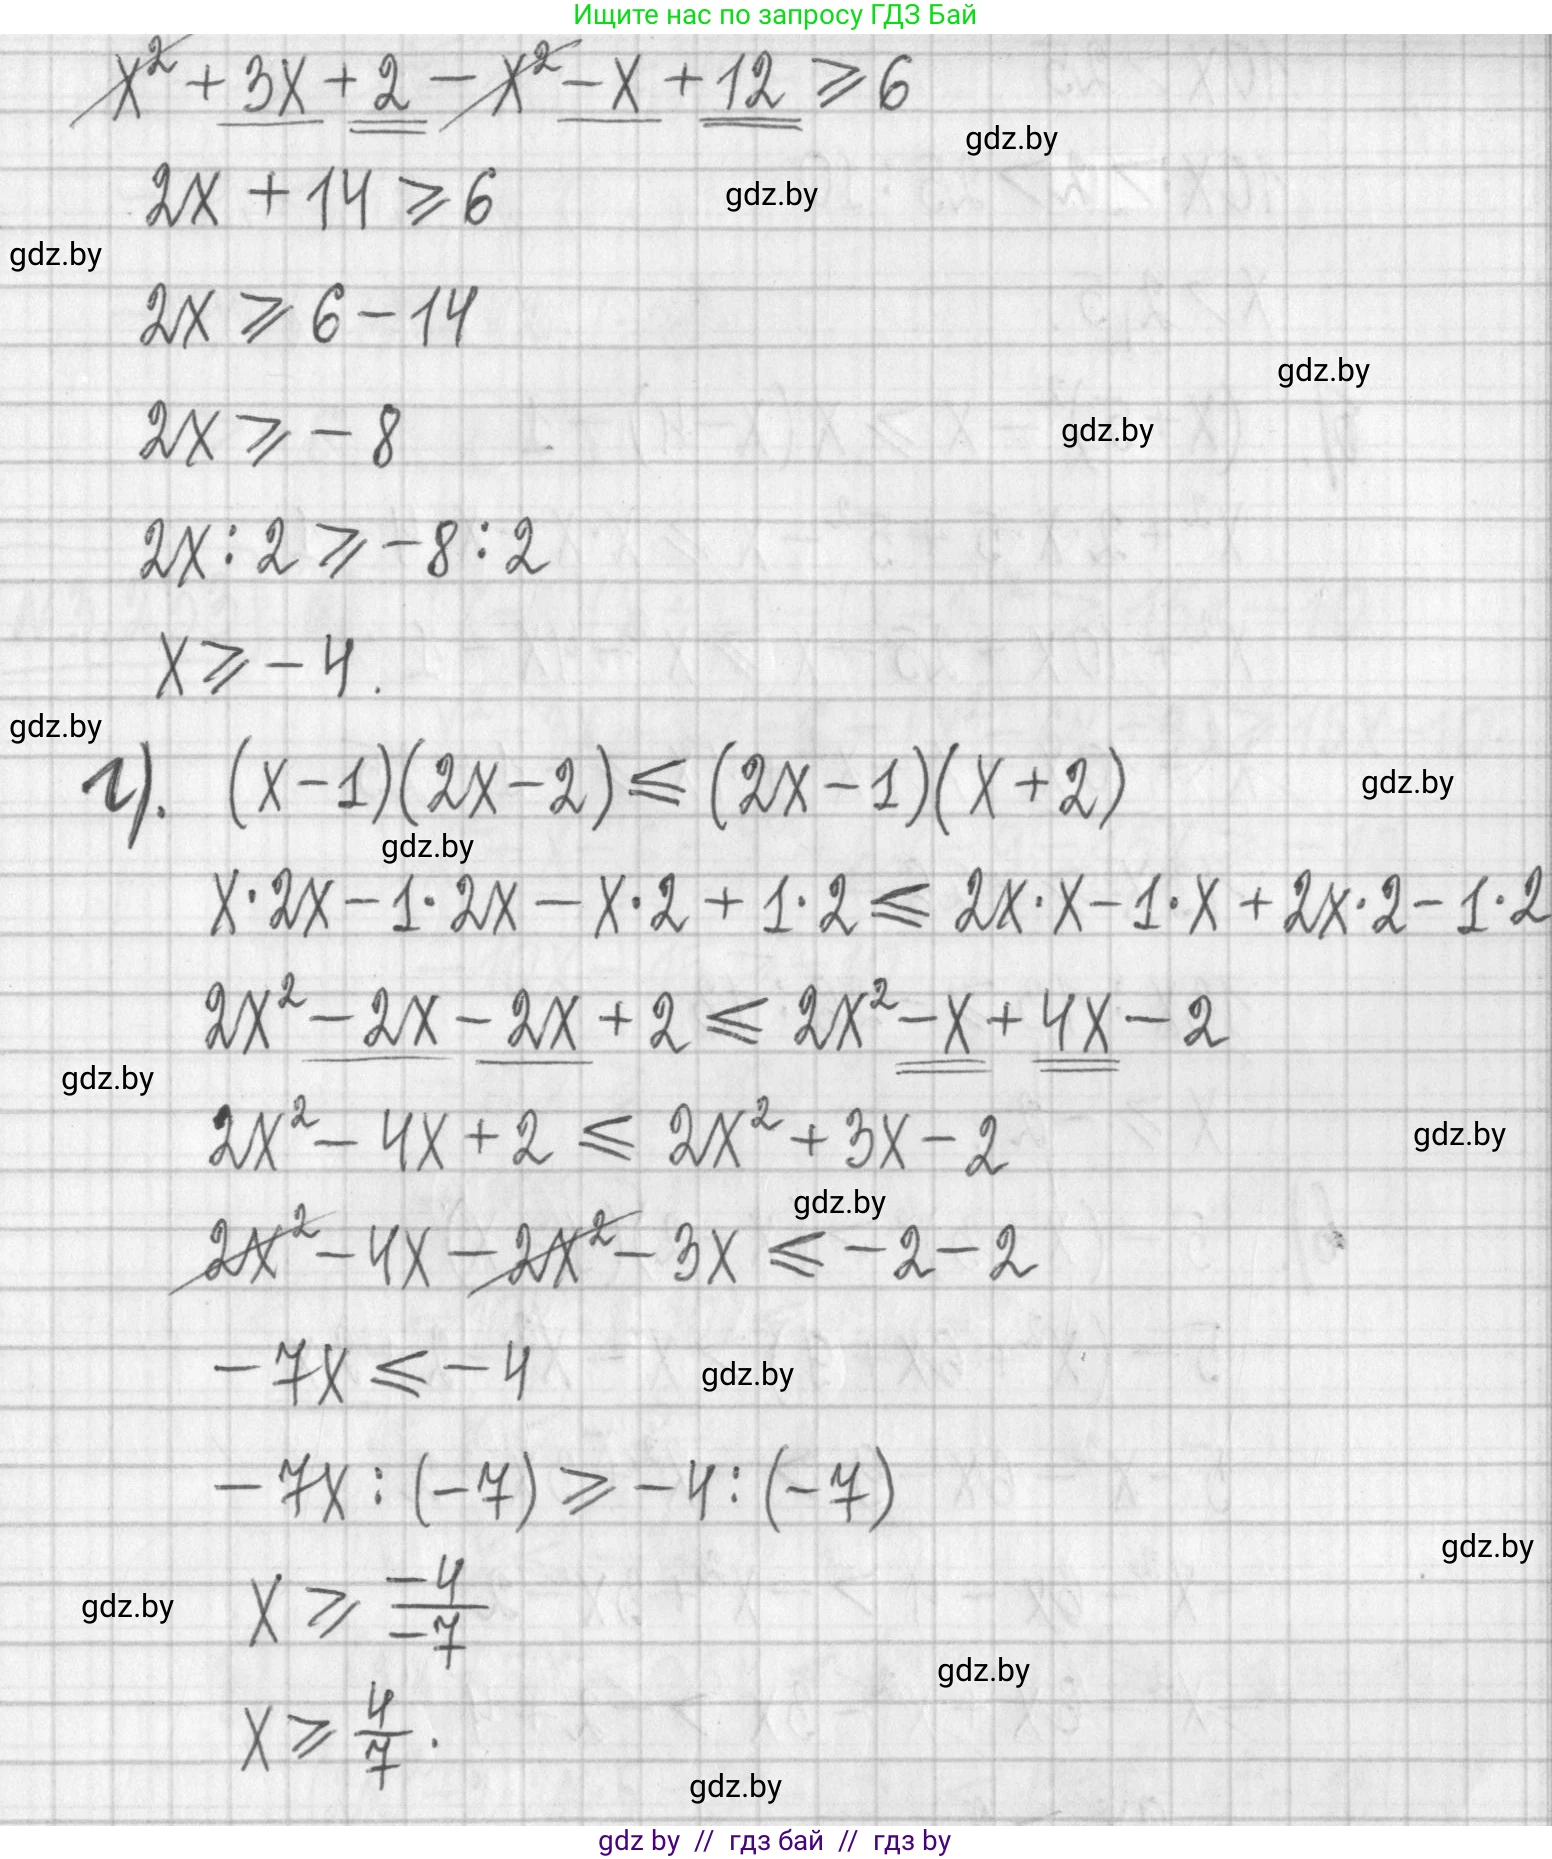 Ищите нас по запросу ГДЗ Бай
x² + 3x + 2 - x² - x + 12 ⩾ 6
gdz.by
2x + 14 ⩾ 6
gdz.by
gdz.by
2x ⩾ 6 - 14
gdz.by
2x ⩾ - 8
gdz.by
2x : 2 ⩾ - 8 : 2
x ⩾ - 4.
gdz.by
г). (x - 1)(2x - 2) ⩽ (2x - 1)(x + 2)
gdz.by
gdz.by
x · 2x - 1 · 2x - x · 2 + 1 · 2 ⩽ 2x · x - 1 · x + 2x · 2 - 1 · 2
2x² - 2x - 2x + 2 ⩽ 2x² - x + 4x - 2
gdz.by
2x² - 4x + 2 ⩽ 2x² + 3x - 2
gdz.by
gdz.by
2x² - 4x - 2x² - 3x ⩽ - 2 - 2
- 7x ⩽ - 4
gdz.by
- 7x : (- 7) ⩾ - 4 : (- 7)
gdz.by
x ⩾ -4/-7
gdz.by
gdz.by
x ⩾ 4/7.
gdz.by
gdz by // гдз бай // гдз by